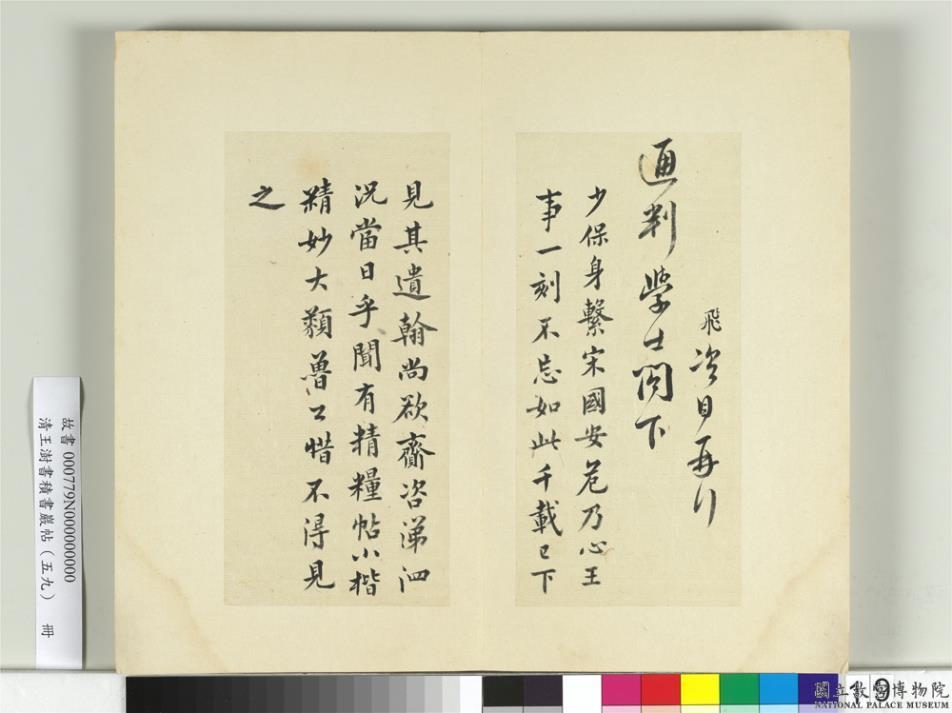 飛咨目再行
通判學士閤下
少保身繫宋國安危乃心王
事一刻不忘如此千載已下
見其遺翰尚欲齎咨涕洟
況當日乎聞有精糧帖小楷
精妙大類魯公惜不得見
之
故書 000779N000000000
清王澍書積書巖帖（五九） 冊
19
國立故宮博物院
NATIONAL PALACE MUSEUM